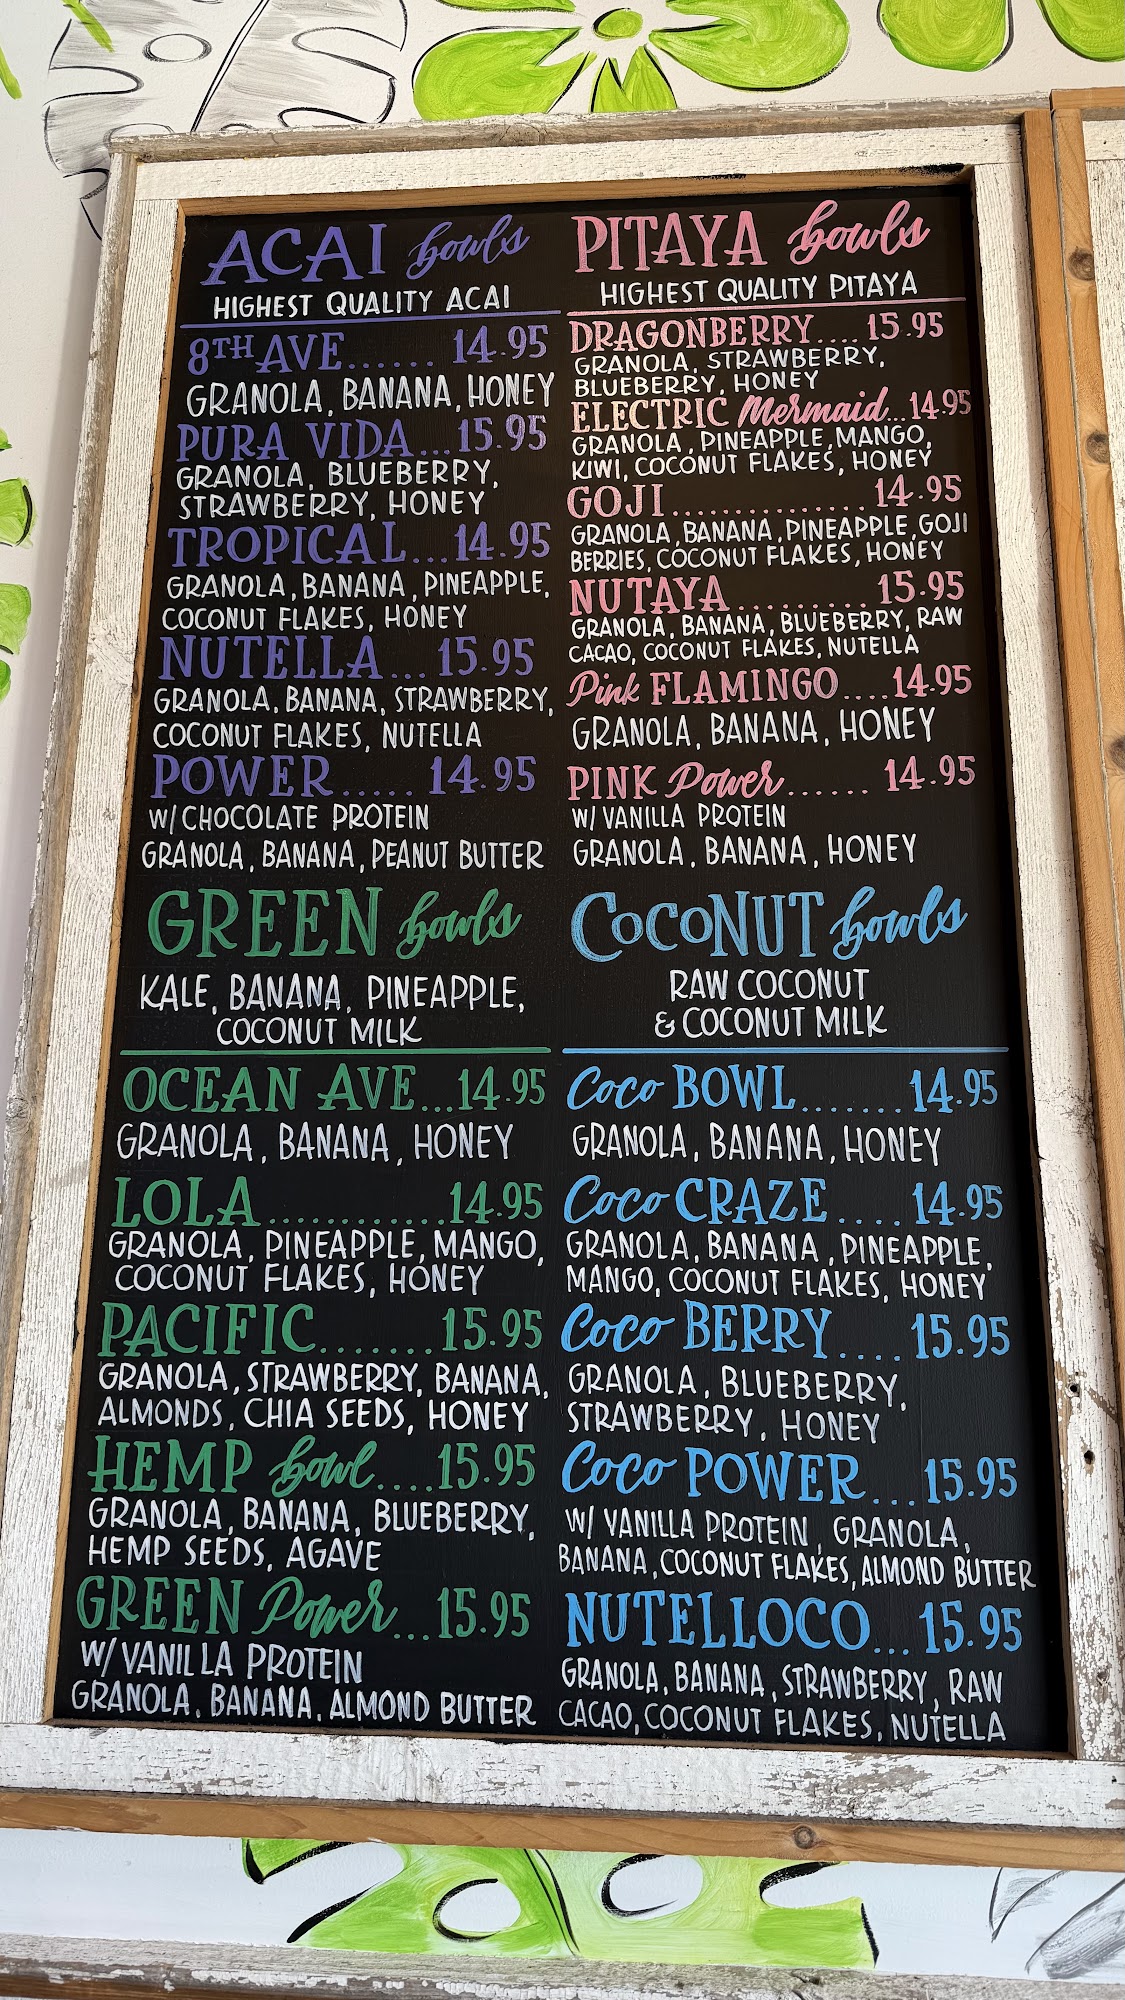 ACAI bowls
HIGHEST QUALITY ACAI
8TH AVE...... 14.95
GRANOLA, BANANA, HONEY
PURA VIDA...15.95
GRANOLA, BLUEBERRY,
STRAWBERRY, HONEY
TROPICAL...14.95
GRANOLA, BANANA, PINEAPPLE,
COCONUT FLAKES, HONEY
NUTELLA... 15.95
GRANOLA, BANANA, STRAWBERRY,
COCONUT FLAKES, NUTELLA
POWER..... 14.95
W/ CHOCOLATE PROTEIN
GRANOLA, BANANA, PEANUT BUTTER
PITAYA bowls
HIGHEST QUALITY PITAYA
DRAGONBERRY.... 15.95
GRANOLA, STRAWBERRY,
BLUEBERRY, HONEY
ELECTRIC Mermaid...14.95
GRANOLA, PINEAPPLE, MANGO,
KIWI, COCONUT FLAKES, HONEY
GOJI............... 14.95
GRANOLA, BANANA, PINEAPPLE, GOJI
BERRIES, COCONUT FLAKES, HONEY
NUTAYA......... 15.95
GRANOLA, BANANA, BLUEBERRY, RAW
CACAO, COCONUT FLAKES, NUTELLA
Pink FLAMINGO....14.95
GRANOLA, BANANA, HONEY
PINK Power...... 14.95
W/ VANILLA PROTEIN
GRANOLA, BANANA, HONEY
GREEN bowls
KALE, BANANA, PINEAPPLE,
COCONUT MILK
OCEAN AVE...14.95
GRANOLA, BANANA, HONEY
LOLA.............14.95
GRANOLA, PINEAPPLE, MANGO,
COCONUT FLAKES, HONEY
PACIFIC.......15.95
GRANOLA, STRAWBERRY, BANANA,
ALMONDS, CHIA SEEDS, HONEY
HEMP bowl....15.95
GRANOLA, BANANA, BLUEBERRY,
HEMP SEEDS, AGAVE
GREEN Power...15.95
W/ VANILLA PROTEIN
GRANOLA, BANANA, ALMOND BUTTER
COCONUT bowls
RAW COCONUT
& COCONUT MILK
Coco BOWL.......14.95
GRANOLA, BANANA, HONEY
Coco CRAZE....14.95
GRANOLA, BANANA, PINEAPPLE,
MANGO, COCONUT FLAKES, HONEY
Coco BERRY....15.95
GRANOLA, BLUEBERRY,
STRAWBERRY, HONEY
Coco POWER...15.95
W/ VANILLA PROTEIN, GRANOLA,
BANANA, COCONUT FLAKES, ALMOND BUTTER
NUTELLOCO... 15.95
GRANOLA, BANANA, STRAWBERRY, RAW
CACAO, COCONUT FLAKES, NUTELLA